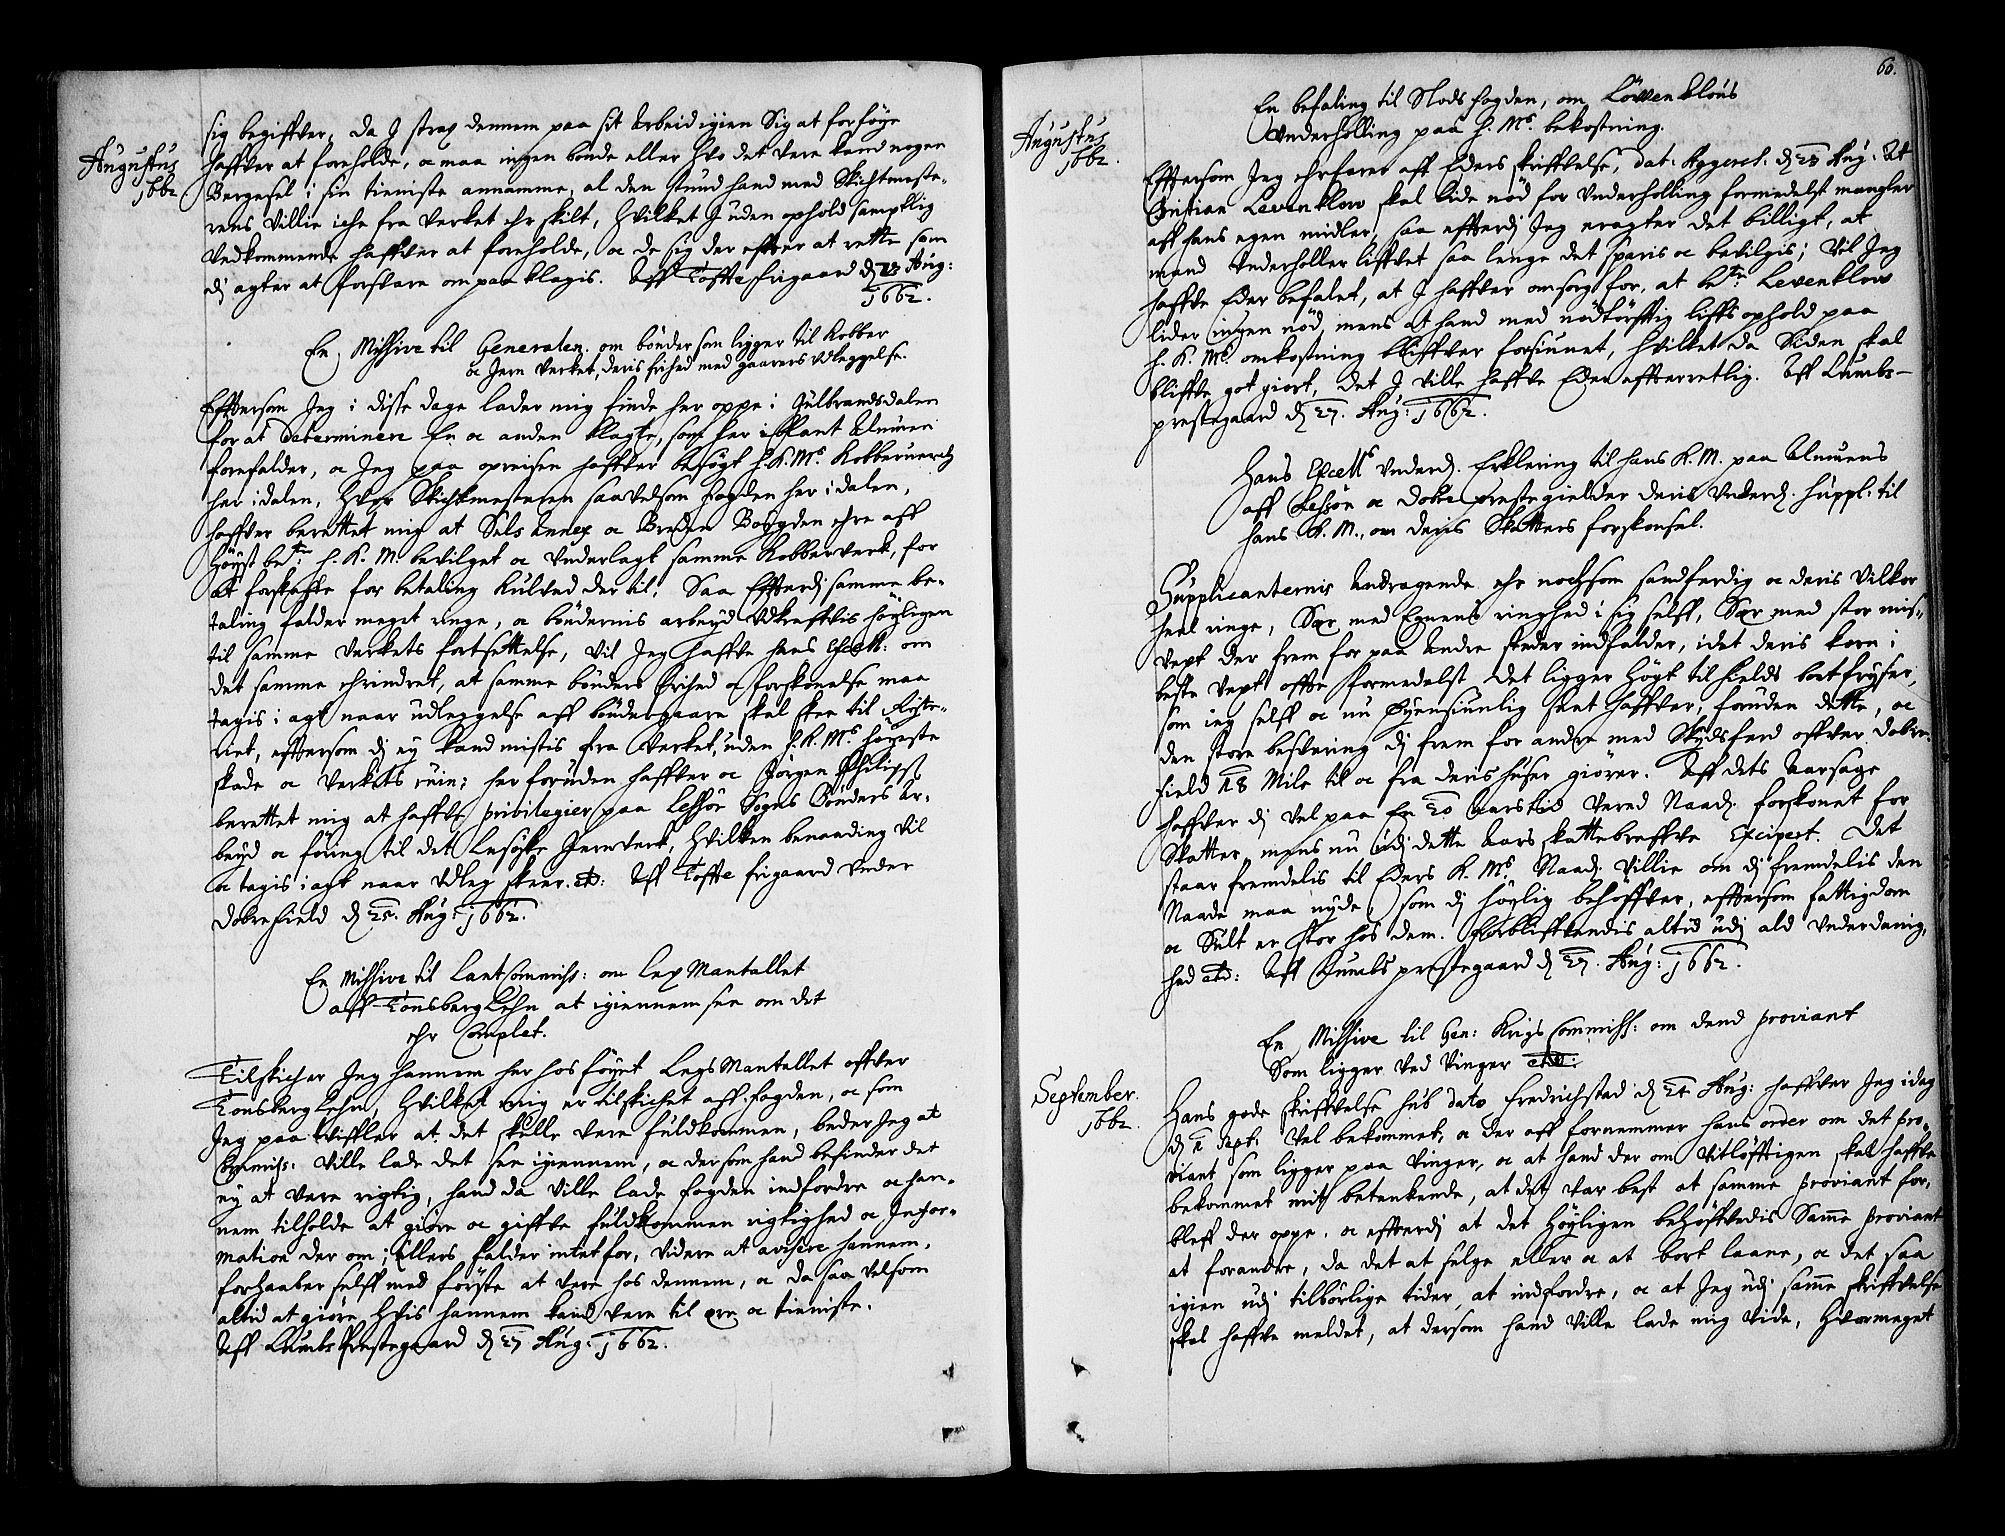 Augustus
1662
sig begiffver, da I strax dennem paa sit Arbeid igien Sig at forføye
haffver at foreholde, oc maa ingen bonde eller hvo det vere kand nogen
Bergesel i sin tieniste annamme, al den stund hand med Skichtmeste-
rens Villie iche fra Verket ehr skilt, hvilket I uden ophold samptlig
Vedkommende haffver at foreholde, oc de sig der effter at rette som
di agter at forsvare om paa klagis. Aff Tofftefrigaard d. 23 Aug:
1662.
En Missive til Generalen, om bønder som ligger til Kobber
oc Jern Verket, deris frihed med gaarers Vdleggelse.
Efftersom Jeg i disse dage lader mig finde her oppe i Gulbrandsdalen
for at determinere En oc anden klagte, som her iblant Almuen
forefalder, oc Jeg paa opreisen haffver besøgt H. K. Ms. Kobberverch
her i dalen, hvor Skichtmesteren saavelsom fogden her i dalen,
haffver berettet mig at Sels Annex oc Breden Boygden ehre aff
høyst bete. H. K. M. bevilget oc Vnderlagt samme Kobberverk, for
at forskaffe for betaling Kulved der til, Saa Efftersi samme be-
taling falder meget ringe, oc bøndernis arbeyd Vdkreffvis høyligen
til samme Verkets fortsettelse, vil Jeg haffve hans Excell: om
det samme ehrindret, at samme bønders frihed oc forskonelse maa
tagis i agt naar udleggelse aff bøndergaare skal skee til Rytte-
riet, efftersom di ey kand mistis fra Verket, uden H. K. Ms. høyeste
skade oc Verkets ruin; her foruden haffver oc Jørgen Philipss.
berettet mig at haffve privilegier paa Lessøe Sogns Bønders Ar-
beyd oc føring til det Lesøyske Jernverk, hvilken benaading vil
oc tagis i agt naar Vdleg skeer. etc: Aff Toffte frigaard under
Dobrefield d. 25. Aug: 1662.
En Missive til Lant Commiss: om Lex Mantallet
aff Tonsberg Lehn at igiennemsee om det
ehr Complet.
Tilskicher Jeg hannem her hos føyet Legs Mantallet offver
Tonsberg Lehn, hvilket mig er tilskichet aff fogden, oc som
Jeg paa tviffler at det skulle vere fuldkommen, beder Jeg at
Commiss: ville lade det see igiennem, oc dersom hand befinder det
ey at vere rigtig, hand da ville lade fogden indfordre oc han-
nem tilholde at giøre oc giffve fuldkommen rigtighed oc Infor-
mation der om; Ellers falder intet for, videre at avisere hannem,
forhaaber selff med første at vere hos dennem, oc da saa velsom
altid at giøre hvis hannem kand vere til ære oc tieniste.
Aff Lumbs Prestegaard d. 27 Aug: 1662.
60.
Augustus
1662.
En befaling til Slodsfogden, om Løvvenklous
Vnderholling paa H. Ms. bekostning.
Efftersom Jeg ehrfarer aff Eders skriffvelse, dat: Aggersh. d. 23 Aug: At
Christian Levenklow skal lide nød for Vnderholling formedelst mangler
aff hans egen midler, saa effterdi Jeg eragter det billigt, at
mand Vnderholler liffvet saa lenge det sparis oc bevilgis; Vil Jeg
haffve Eder befalet, at I haffver omsorg for, at bete. Levenklow
lider ingen nød, mens at hand med nødtørfftig liffs ophold paa
H. K. Ms. omkostning bliffver forsiunet, hvilket da siden skal
bliffve got giort, det I ville haffve Eder effterretlig. Aff Lumbs-
prestegaard d. 27. Aug: 1662.
Hans Excells. Vnderd. Erklering til hans K. M. paa Almuens
aff Lessøe oc Dobre prestegielder deris Vnderd. suppl: til
hans K. M., om deris Skatters forskonsel.
Supplicanternis Andragende ehr nochsom sandferdig oc deris Vilkor
heel ringe, Saa med Egnens ringhed i sig selff, Saa med stor mis-
vext der frem for paa Andre steder indfalder, idet deris korn i
beste vext offte formedelst det ligger høyt til fields bortfryser,
som ieg selff oc nu øyensiunlig seet haffver, foruden dette, oc
den store besvering di frem for andre med Skydsferd offver Dobre-
field 18 Mile til oc fra deris huser giører. Aff dets Aarsage
haffver di vel paa En 20 Aars tid vered Naad. forskonet for
Skatter, mens nu udi dette Aars skattebreffve Excipert. Det
staar fremdelis til Eders K. Ms. Naad. Villie om di fremdelis den
Naade maa nyde, som di høylig behøffver, efftersom fattigdom
oc Sult er stor hos dem. Forbliffvendis altid udi ald Vnderdanig-
hed etc: Aff Lumbs prestegaard d. 27. Aug: 1662.
En Missive til Gen: Krigs Commiss: om dend proviant
Som ligger ved Vinger etc.
September.
1662.
Hans gode skriffvelse sub dato Fredrichstad d. 21 Aug: haffver Jeg idag
d. 1 Sept: vel bekommet, oc der aff fornemmer hans order om det pro-
viant som ligger paa Vinger, oc at hand der om vitløfftigen skal haffve
bekommet mit betenkende, at det var best at samme proviant for-
bleff der oppe, oc effterdi at det høyligen behøffvedis Samme proviant
at forandre, da det at selge eller oc at bort laane, oc det saa
igien udi tilbørlige tider at indfordre, oc at Jeg udi samme skriffvelse
skal haffve meldet, at dersom hand ville lade mig vide, hvormeget